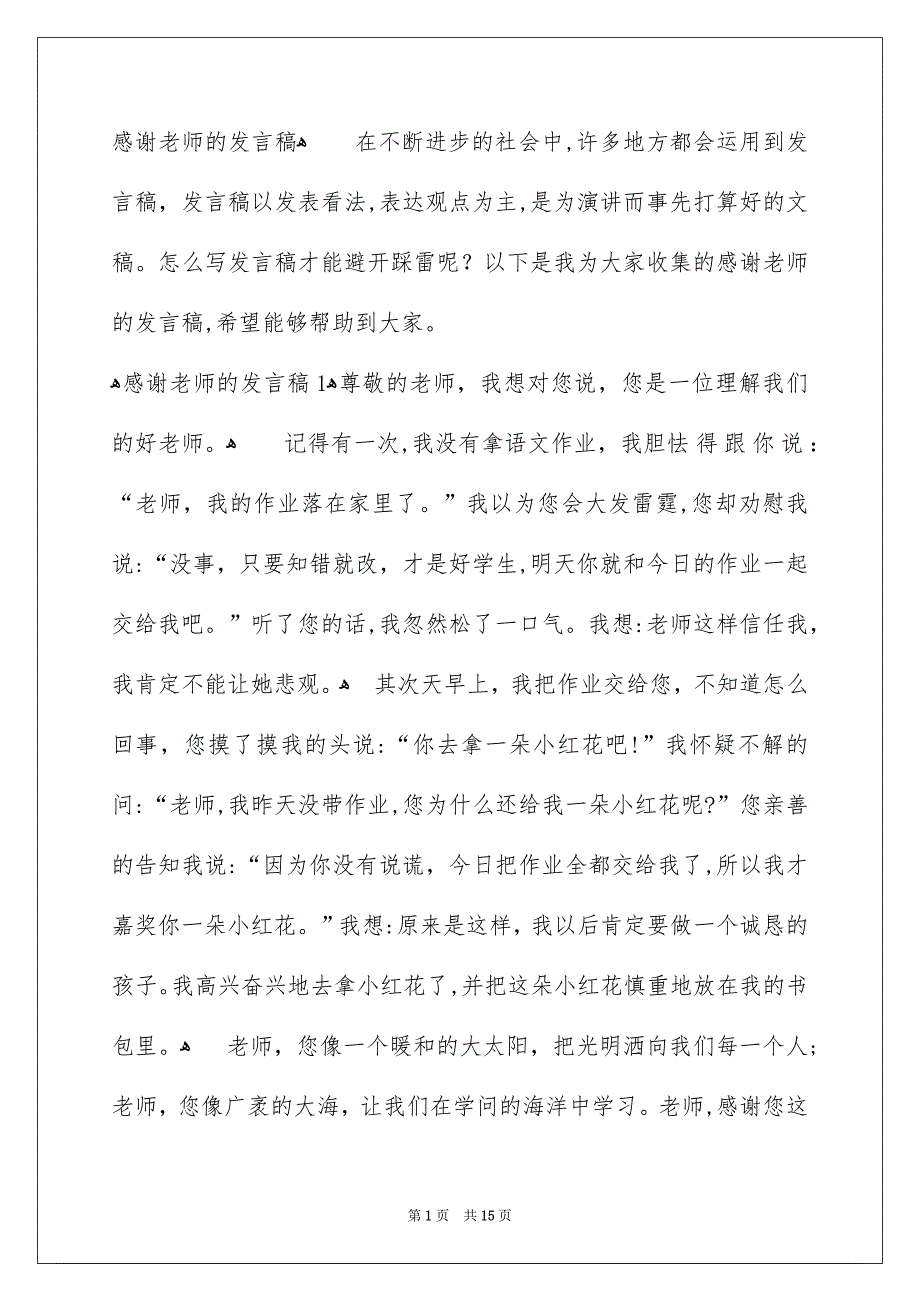 感谢老师的发言稿ﻫ　　在不断进步的社会中,许多地方都会运用到发
言稿，发言稿以发表看法,表达观点为主,是为演讲而事先打算好的文
稿。怎么写发言稿才能避开踩雷呢？以下是我为大家收集的感谢老师
的发言稿,希望能够帮助到大家。
ﻫ感谢老师的发言稿1ﻫ尊敬的老师，我想对您说，您是一位理解我们
的好老师。ﻫ　　记得有一次,我没有拿语文作业，我胆怯得跟你说：
“老师，我的作业落在家里了。”我以为您会大发雷霆,您却劝慰我
说:“没事，只要知错就改，才是好学生,明天你就和今日的作业一起
交给我吧。”听了您的话,我忽然松了一口气。我想:老师这样信任我，
我肯定不能让她悲观。ﻫ　其次天早上，我把作业交给您，不知道怎么
回事，您摸了摸我的头说:“你去拿一朵小红花吧!”我怀疑不解的
问:“老师,我昨天没带作业,您为什么还给我一朵小红花呢?”您亲善
的告知我说:“因为你没有说谎，今日把作业全都交给我了,所以我才
嘉奖你一朵小红花。”我想:原来是这样，我以后肯定要做一个诚恳的
孩子。我高兴奋兴地去拿小红花了,并把这朵小红花慎重地放在我的书
包里。ﻫ　　老师，您像一个暖和的大太阳，把光明洒向我们每一个人;
老师，您像广袤的大海，让我们在学问的海洋中学习。老师,感谢您这
第1页 共15页